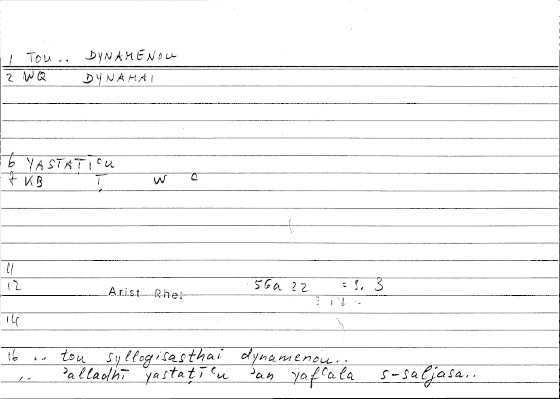 1 TOU.. DYNAMENOU
2 WQ DYNAMAI
6 YASTAṬĪʿU
7 KB Ṭ W ʿ
11
12 Arist Rhet 56a 22 = 9. 3
14
16 .. tou syllogisasthai dynamenou..
.. ʾalladhī yastaṭīʿu ʾan yafʿala s-saljasa..